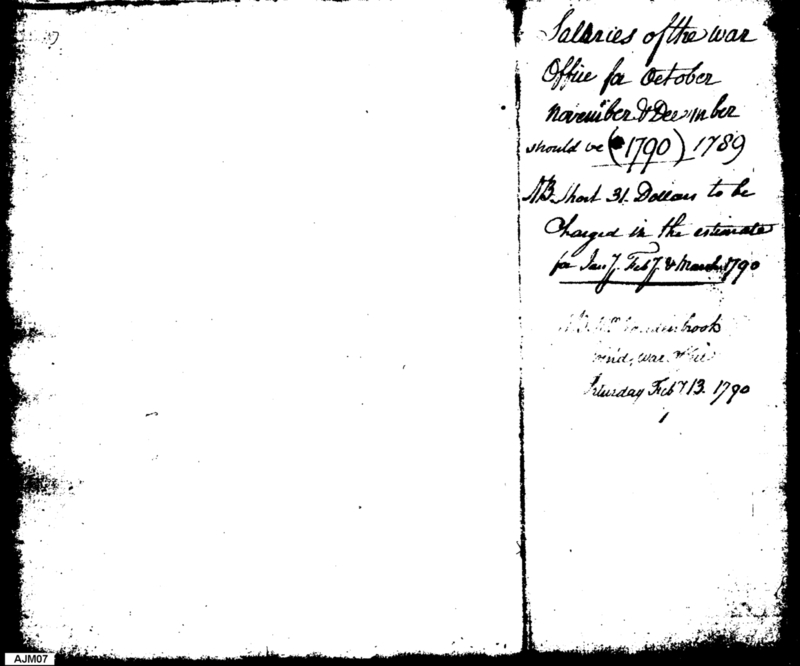 Salaries of the war
Office for October
November & December
should be (1790) 1789
NB. Short 31. Dollars to be
Charged in the estimate
for Jany. Feby. & March 1790
war Office
Saturday Feby 13. 1790
AJM07